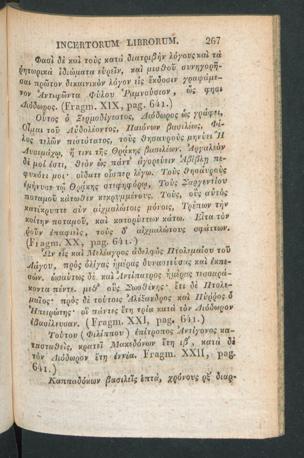 INCERTORUM LIBRORUM. 267
Φασὶ δὲ καὶ τοὺς κατὰ διατριβὴν λόγους καὶ τὰ
ῥητορικὰ ἰδιώματα εὑρεῖν, καὶ μισθοῦ συνηγορῆ-
σαι πρῶτον δικανικὸν λόγον εἰς ἔκδοσιν γραψάμε-
νον Ἀντιφῶντα Φύλου Ῥαμνούσιον, ὥς φησι
Διόδωρος. (Fragm. XIX, pag. 641.)
Οὗτος ὁ Σερμοδίγιστος, Διόδωρος ὡς γράφει,
Οἶμαι τοῦ Αὐδολέοντος, Παιόνων βασιλέως, Φί-
λος τελῶν πιστότατος, τοὺς θησαυροὺς μηνύει
Λυσιμάχῳ, ἤ τινι τῆς Θρᾴκης βασιλέων. Ἀργαλέον
δέ μοί ἐστι, θεὸν ὣς πάντ᾽ ἀγορεύειν
φυκότι μοι· οἴδατε οἷσπερ λέγω. Τοὺς θησαυροὺς
ἐμήνυσε τῷ Θρᾴκης στεφηφόρῳ, Τοὺς Σαργεντίου
ποταμοῦ κάτωθεν κεκρυμμένους, Τούς, οὓς αὐτὸς
κατέκρυπτε σὺν αἰχμαλώτοις μόνοις, Τρέπων τὴν
κοίτην ποταμοῦ, καὶ κατορύττων κάτω. Εἶτα τὸν
ῥοῦν ἐπαφιείς, τοὺς δ᾽ αἰχμαλώτους σφάττων.
(Fragm. XX, pag. 641.)
Ὧν εἷς καὶ Μελέαγρος ἀδελφὸς Πτολεμαίου τοῦ
Λάγου, πρὸς ὀλίγας ἡμέρας δυναστεύσας καὶ ἐκπε-
σών, ὡσαύτως δὲ καὶ Ἀντίπατρος ἡμέρας τεσσαρά-
κοντα πέντε. μεθ᾽ οὓς Σωσθένης· ἔτι δὲ Πτολε-
μαῖος· πρὸς δὲ τούτοις Ἀλέξανδρος καὶ Πύῤῥος ὁ
Ἠπειρώτης· οἱ πάντες ἔτη τρία κατὰ τὸν Διόδωρον
ἐβασίλευσαν. (Fragm. XXI, pag. 641.)
Τούτου (Φιλίππου) ἐπίτροπος Ἀντίγονος κα-
τασταθεὶς, κρατεῖ Μακεδόνων ἔτη ιβ΄, κατὰ δὲ
τὸν Διόδωρον ἔτη ἐννέα. Fragm. XXII, pag.
641.)
Καππαδόκων βασιλεῖς ἑπτὰ, χρόνους ρξ΄ διαρ-